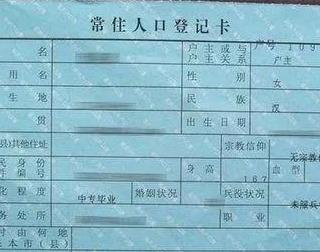 常住人口登记卡
名 户主或与户主关系 户号 109 户主
用名 性别 女
生地 民族 汉
贯 出生日期
县)其他住址 宗教信仰 无宗教信
民身份件编号 身高 167 血型
化程度 中专毕业 婚姻状况 兵役状况 未服兵
务处所 职业
时由何地
本市(县)